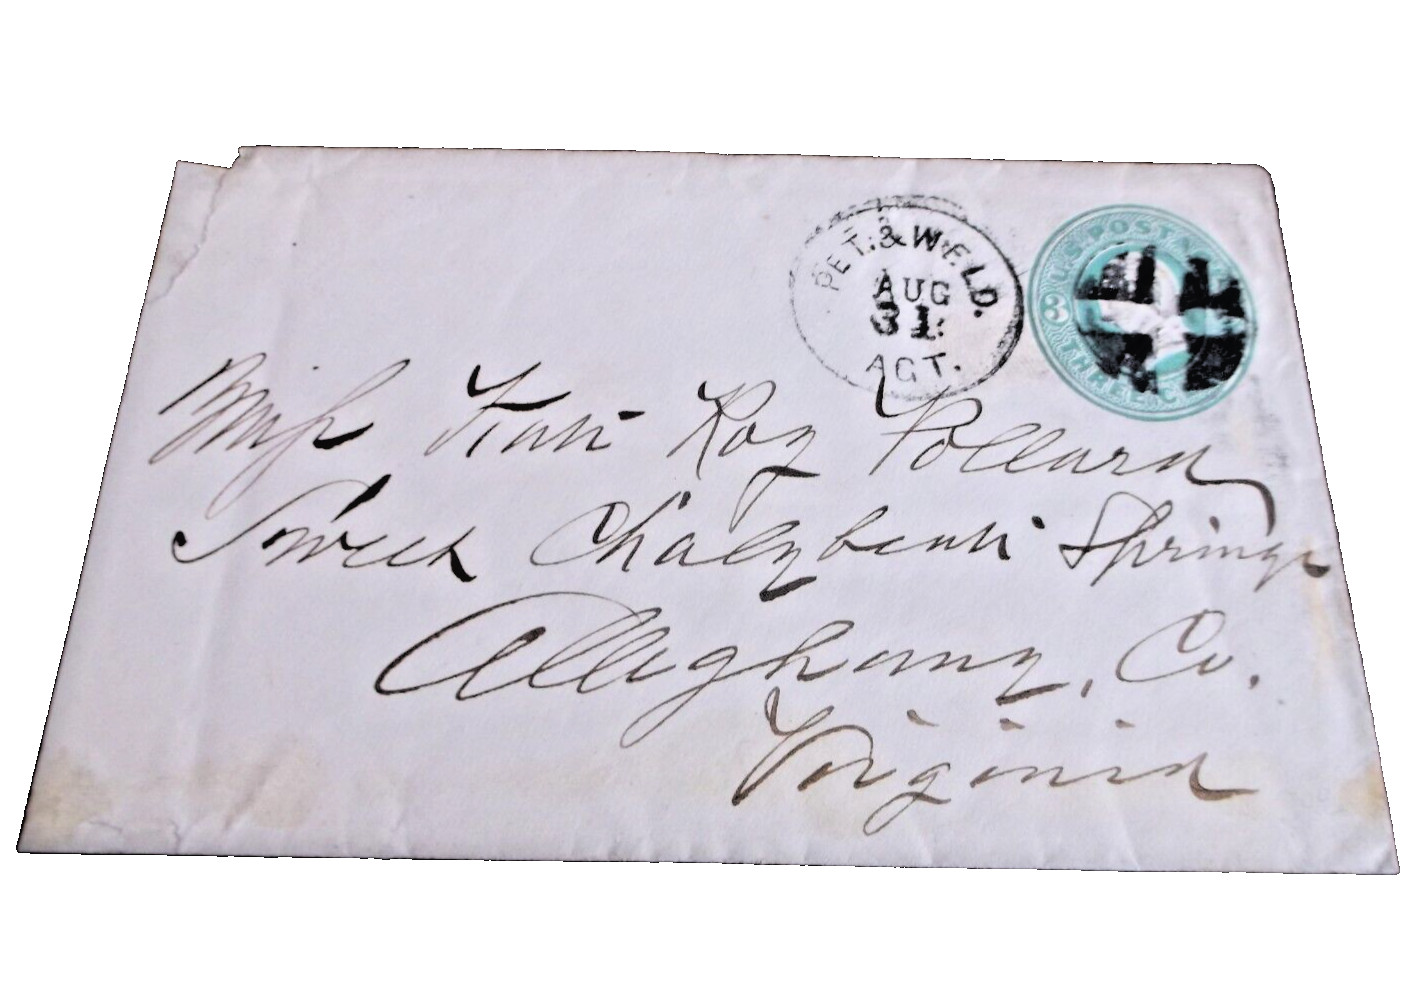 PET. & WELD.
AUG
31
AGT.
U.S. POSTAGE
3
THREE C
Miss Kate Roy Pollard
Sweet Chalybeate Springs
Alleghany, Co.
Virginia